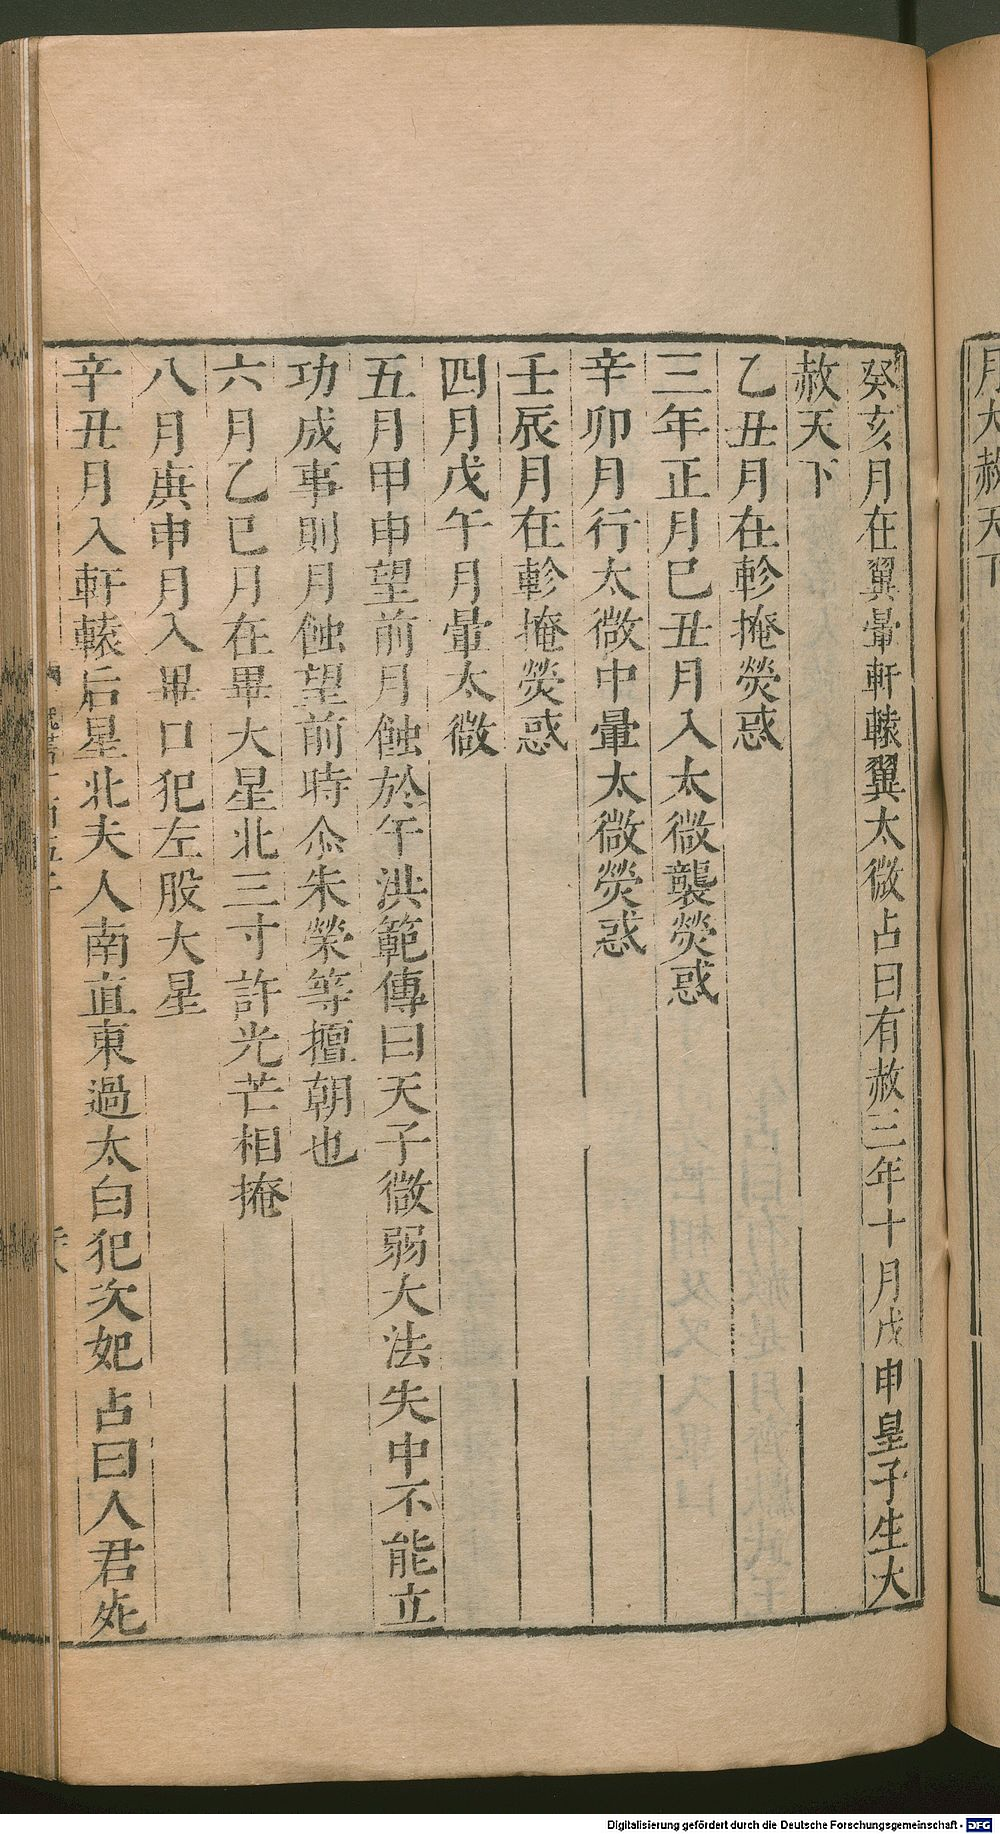 月大赦天下
癸亥月在翼暈軒轅翼太微占曰有赦三年十月戊申皇子生大
赦天下
乙丑月在軫掩熒惑
三年正月己丑月入太微襲熒惑
辛卯月行太微中暈太微熒惑
壬辰月在軫掩熒惑
四月戊午月暈太微
五月甲申望前月蝕於午洪範傳曰天子微弱大法失中不能立
功成事則月蝕望前時尒朱榮等擅朝也
六月乙巳月在畢大星北三寸許光芒相掩
八月庚申月入畢口犯左股大星
辛丑月入軒轅后星北夫人南直東過太白犯次妃占曰人君死
Digitalisierung gefördert durch die Deutsche Forschungsgemeinschaft - DFG